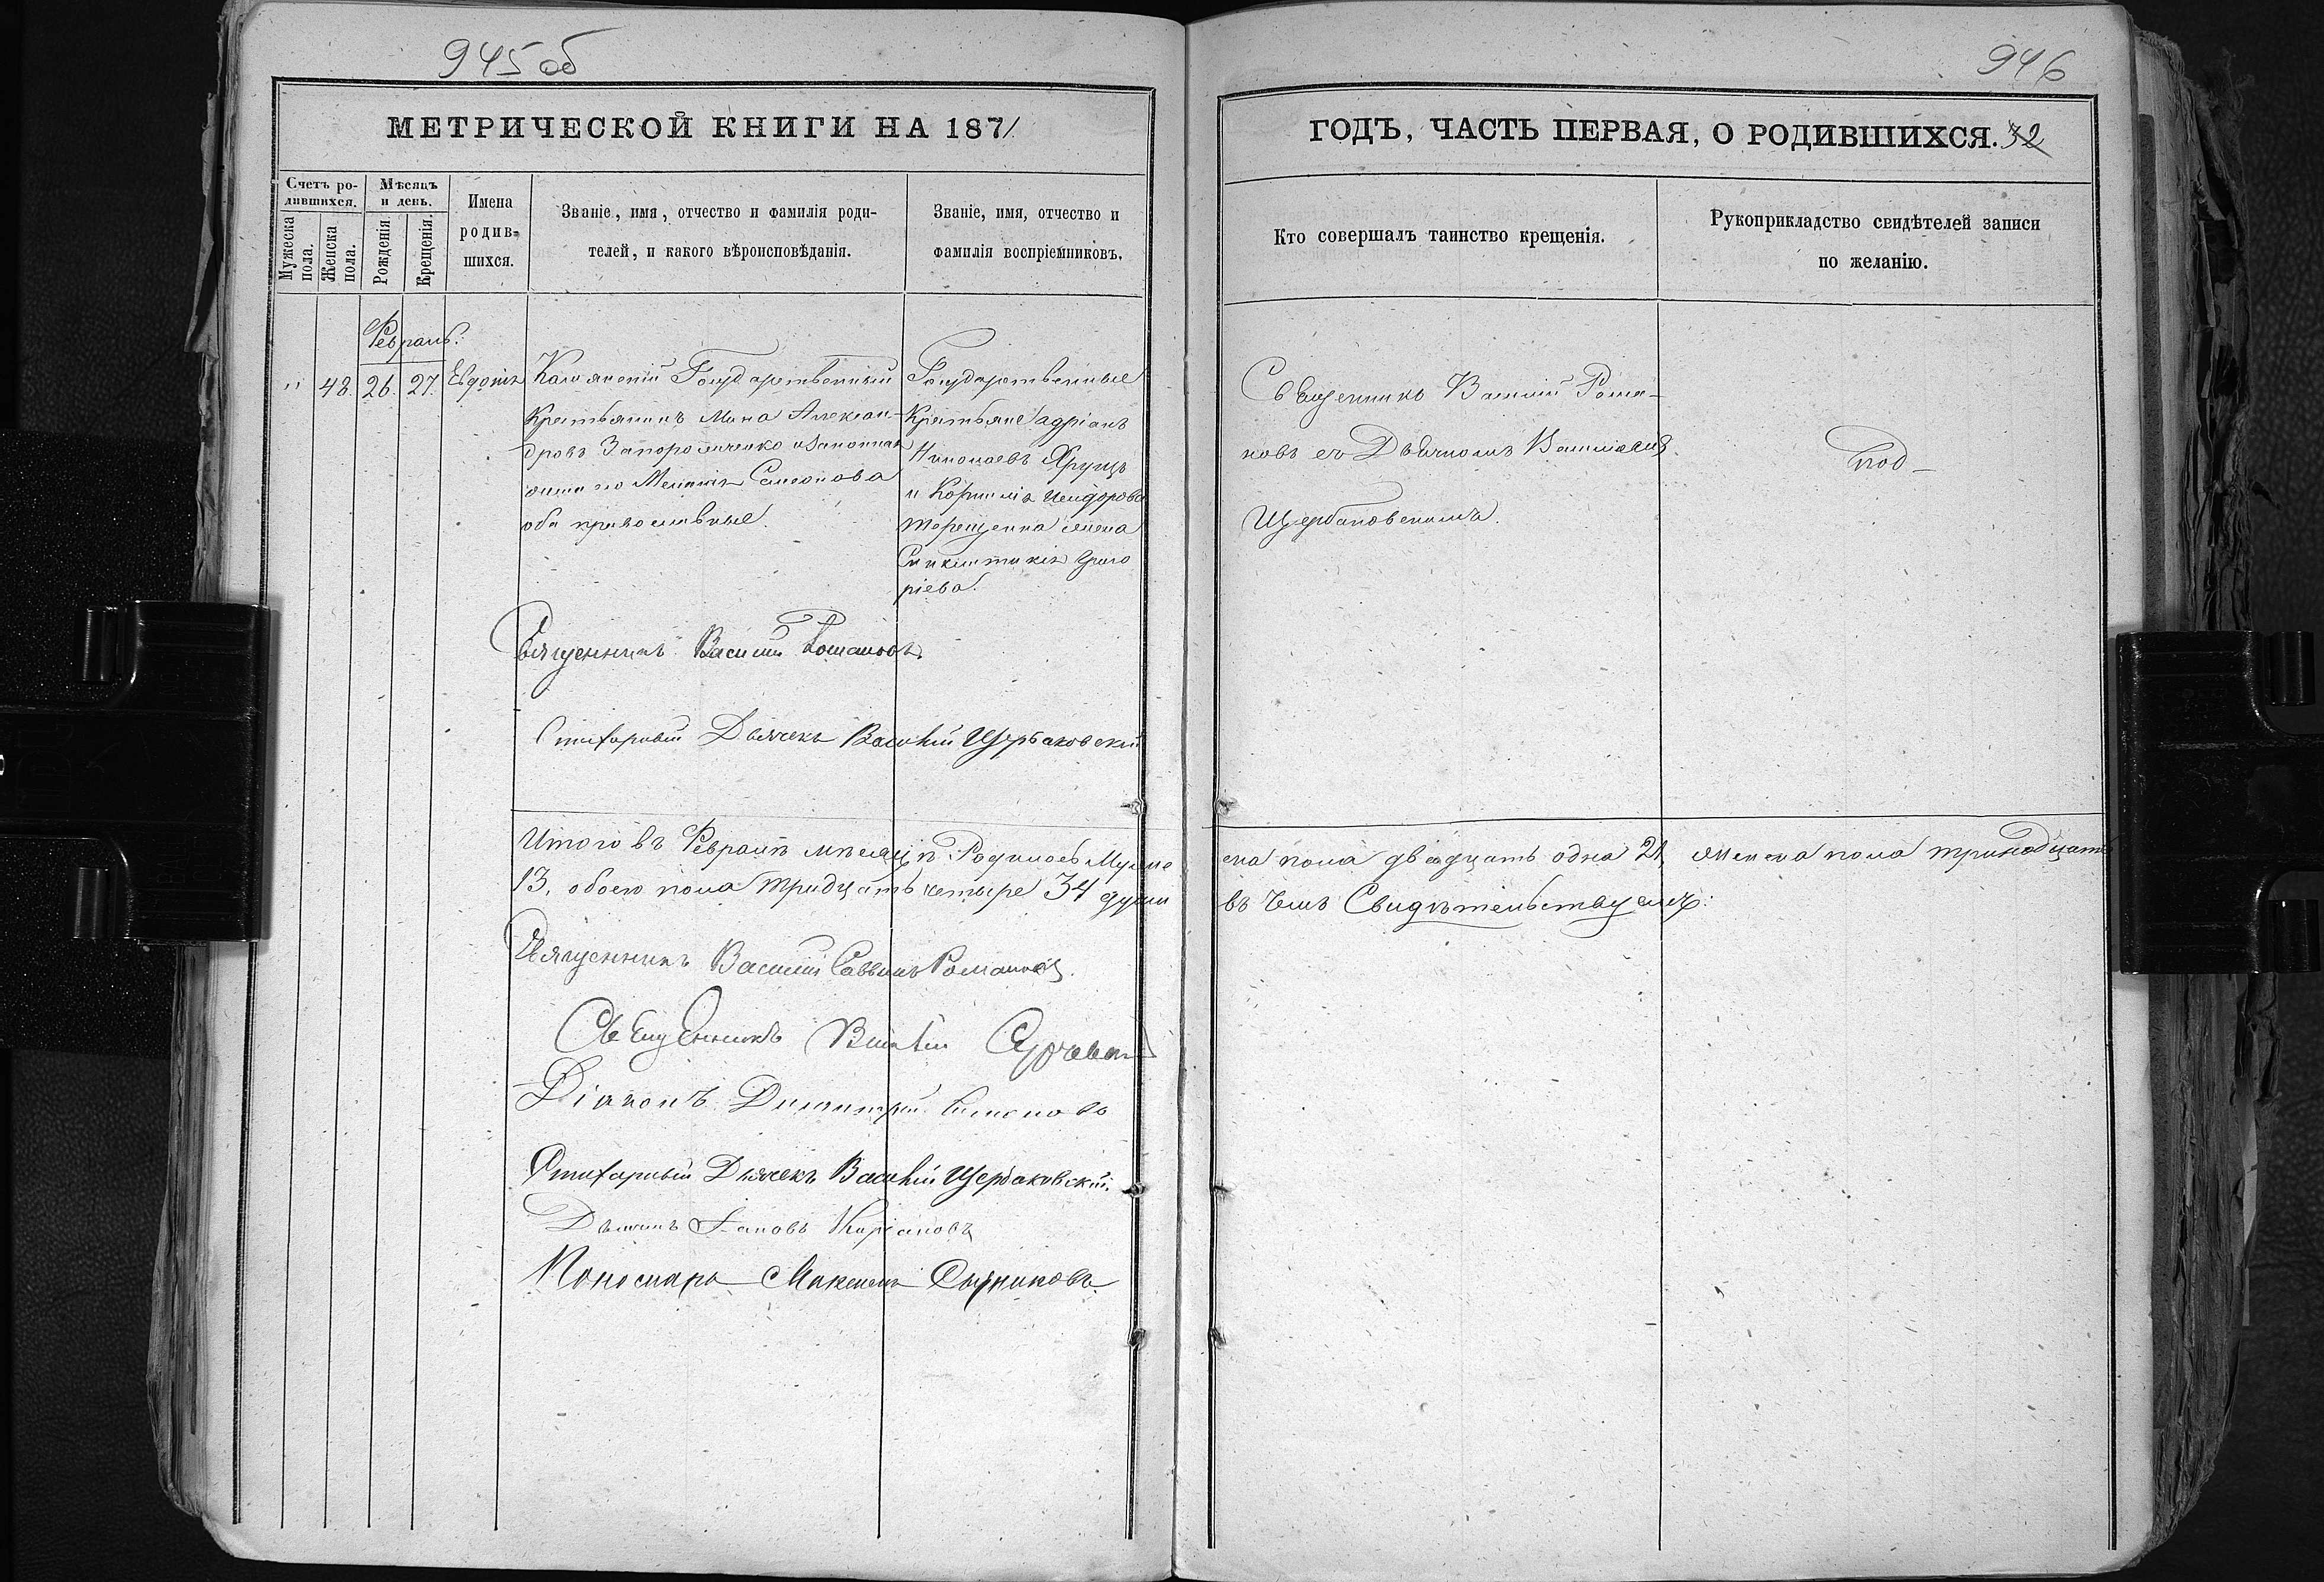 945 об
МЕТРИЧЕСКОЙ КНИГИ НА 1871
Счетъ ро-
дившихся.
Мѣсяцъ
и день.
Мужеска
пола.
Женска
пола.
Рожденія
Крещенія.
Имена
родив-
шихся.
Званіе, имя, отчество и фамилія роди-
телей, и какого вѣроисповѣданія.
Званіе, имя, отчество и
фамилія воспріемниковъ.
Февраль.
" 48. 26. 27. Евдокія
Государственный
Крестьянинъ Мина Алексан-
дровъ Запорожченко и законная
жена его Меланія Самсонова
оба православные.
Государственные
Крестьяне Адріанъ
Николаевъ
и Корнилія Исидорова
Терещенка жена
Синклитикія Григо
ріева.
Священникъ Василій Романовъ.
Стихарный Дьячекъ Василій Щербаковскій
Итого въ Февралѣ мѣсяцѣ Родилось Муже
13, обоего пола тридцать четыре 34 души
Священникъ Василій Саввинъ Романовъ.
Священникъ
Діаконъ Димитрій
Стихарный Дьячекъ Василій Щербаковскій.
Дьячекъ Іаковъ
Пономарь Максимъ
946
ГОДЪ, ЧАСТЬ ПЕРВАЯ, О РОДИВШИХСЯ. 32
Кто совершалъ таинство крещенія.
Рукоприкладство свидѣтелей записи
по желанію.
Священникъ Василій Рома-
новъ съ Дьячкомъ Василіемъ
Щербаковскимъ.
ска пола двадцать одна 21, женска пола тринадцать
въ чемъ Свидѣтельствуемъ: